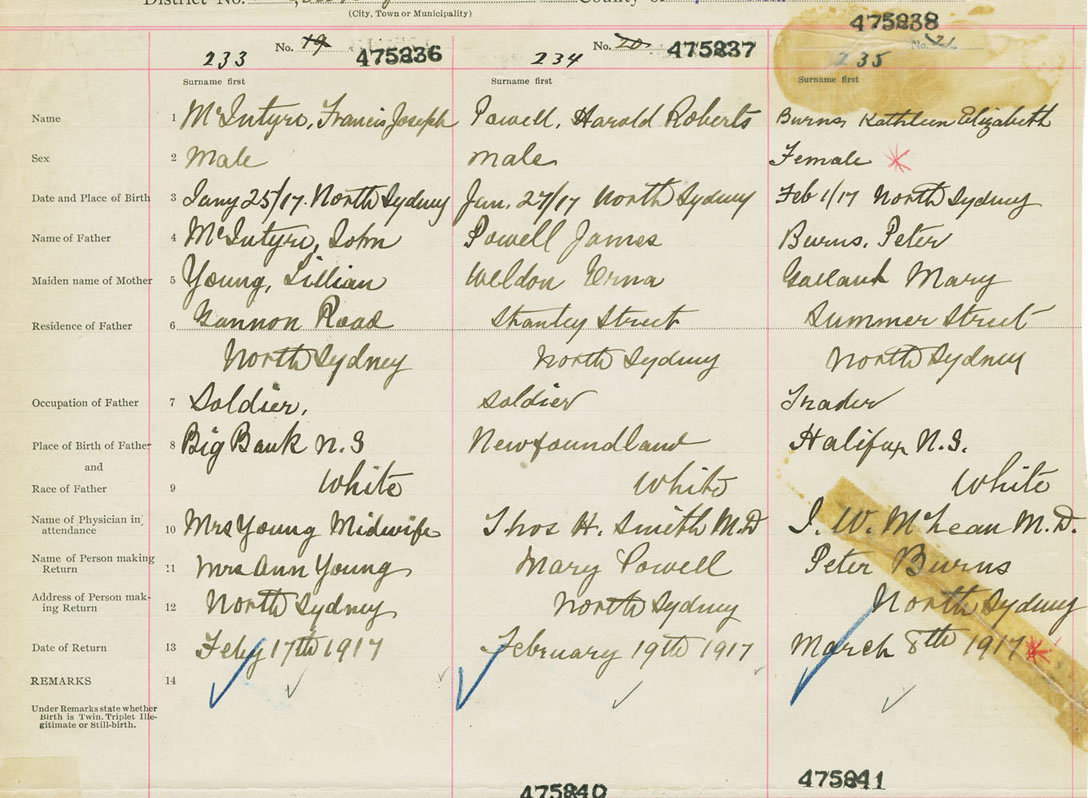 District No. County of
(City, Town or Municipality)
475838
No. 19 475836 No. 20 475837 No. 21
233 234 235
Surname first Surname first Surname first
Name 1 McIntyre, Francis Joseph Powell, Harold Roberts Burns, Kathleen Elizabeth
Sex 2 Male male Female *
Date and Place of Birth 3 Jany 25/17. North Sydney Jan. 27/17 North Sydney Feb 1/17 North Sydney
Name of Father 4 McIntyre, John Powell James Burns, Peter
Maiden name of Mother 5 Young, Lillian Weldon Erna Gallant Mary
Residence of Father 6 Gannon Road Stanley Street Summer Street
North Sydney North Sydney North Sydney
Occupation of Father 7 Soldier, Soldier Trader
Place of Birth of Father 8 Big Bank N.S Newfoundland Halifax N.S.
and
Race of Father 9 White White White
Name of Physician in 10 Mrs Young Midwife Thos H. Smith M.D J. W. McLean M.D.
attendance
Name of Person making 11 Mrs Ann Young Mary Powell Peter Burns
Return
Address of Person mak- 12 North Sydney North Sydney North Sydney
ing Return
Date of Return 13 Feby 17th 1917 February 19th 1917 March 8th 1917 *
REMARKS 14
Under Remarks state whether
Birth is Twin, Triplet Ille-
gitimate or Still-birth.
475840 475841